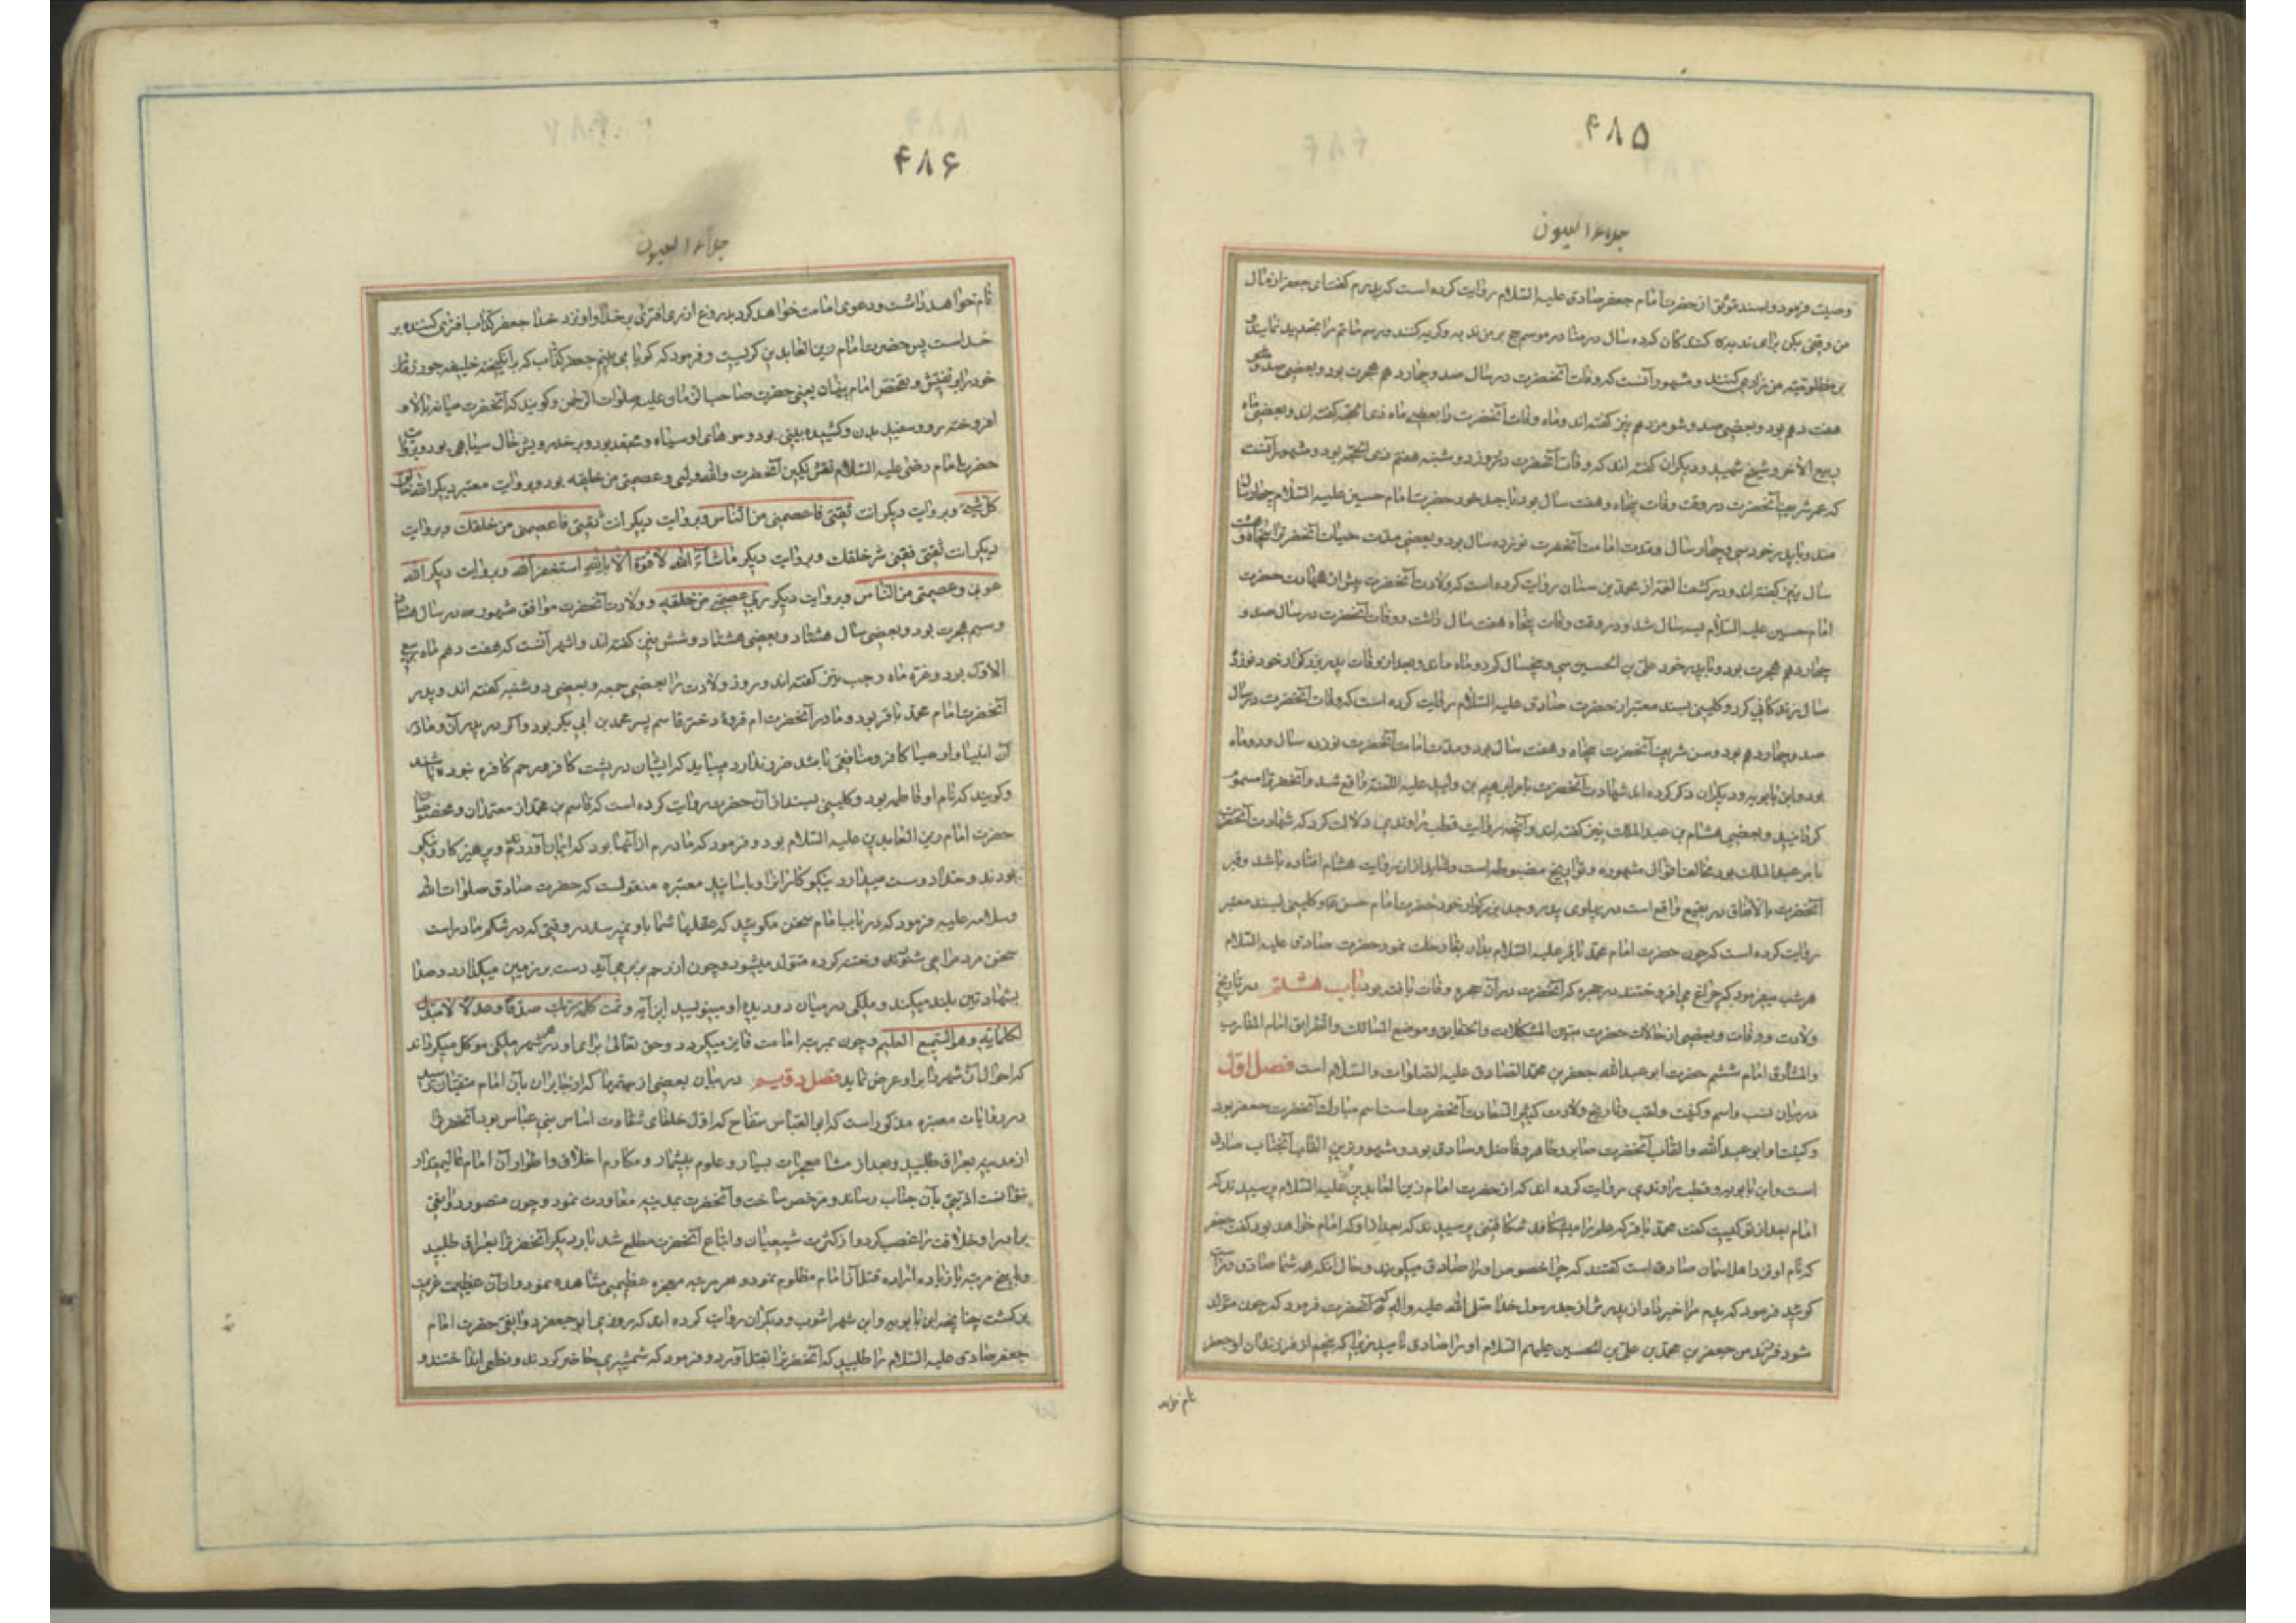 ۴۸۵
جلاء العیون
وصیت فرمود و بسند موثق از حضرت امام جعفر صادق علیه السلام روایت کرده است که پدرم گفت ای جعفر از مال
من وقفی بکن برای ندبه کنندگان که ده سال در منا در موسم حج بر من ندبه و گریه کنند و رسم ماتم را تجدید نمایند و
بر مظلومیت من زاری کنند و مشهور آنست که وفات آنحضرت در سال صد و چهاردهم هجرت بود و بعضی صد و
هفتدهم بود و بعضی صد و شونزدهم نیز گفته اند و ماه وفات آنحضرت را بعضی ماه ذی الحجه گفته اند و بعضی ماه
ربیع الآخر و شیخ شهید و دیگران گفته اند که وفات آنحضرت در روز دوشنبه هفتم ذی الحجه بود و مشهور آنست
که عمر شریف آنحضرت در وقت وفات پنجاه و هفت سال بود با جد خود حضرت امام حسین علیه السلام چهار سال
ماند و با پدر خود سی و چهار سال و مدت امامت آنحضرت نوزده سال بود و بعضی مدت حیات آنحضرت را پنجاه و هشت
سال نیز گفته اند و در کشف الغمه از محمد بن سنان روایت کرده است که ولادت آنحضرت پیش از شهادت حضرت
امام حسین علیه السلام بسه سال شد و در وقت وفات پنجاه هفت سال داشت و وفات آنحضرت در سال صد و
چهاردهم هجرت بود و با پدر خود علی بن الحسین سی و پنجسال کم دو ماه ماند و بعد از وفات پدر بزرگوار خود نوزده
سال زندگانی کرد و کلینی بسند معتبر از حضرت صادق علیه السلام روایت کرده است که وفات آنحضرت در سال
صد و چهاردهم بود و سن شریف آنحضرت پنجاه و هفت سال بود و مدت امامت آنحضرت نوزده سال و دو ماه
بود و ابن بابویه و دیگران ذکر کرده اند شهادت آنحضرت بامر ابراهیم بن ولید علیه اللعنه واقع شد و آنحضرت را مسموم
گردانید و بعضی هشام بن عبد الملک نیز گفته اند و آنچه روایت قطب راوندی دلالت کرد که شهادت آنحضرت
بامر عبد الملک بود مخالف اقوال مشهوره و تواریخ مضبوطه است و شاید از آن روایت هشام افتاده باشد و قبر
آنحضرت بالاتفاق در بقیع واقع است در پهلوی پدر و جد بزرگوار خود حضرت امام حسن ع و کلینی بسند معتبر
روایت کرده است که چون حضرت امام محمد باقر علیه السلام بدار بقا رحلت نمود حضرت صادق علیه السلام
هر شب میفرمود که چراغ می افروختند در حجره که آنحضرت در آن حجره وفات یافته بود باب هشتم در تاریخ
ولادت و وفات و بعضی از حالات حضرت مبین المشکلات و الحقایق و موضح المسالک و الطرایق امام المغارب
والمشارق امام ششم حضرت ابو عبد الله جعفر بن محمد الصادق علیه الصلوات و السلام است فصل اول
در بیان نسب و اسم و کنیت و لقب و تاریخ ولادت کثیر السعادت آنحضرت است اسم مبارک آنحضرت جعفر بود
و کنیت او ابو عبد الله و القاب آنحضرت صابر و طاهر و فاضل و صادق بود و مشهورترین القاب آنجناب صادق
است و ابن بابویه و قطب راوندی روایت کرده اند که از حضرت امام زین العابدین علیه السلام پرسیدند که
امام بعد از تو کیست گفت محمد باقر که علم را میشکافد شکافتنی پرسیدند که بعد از او که امام خواهد بود گفت جعفر
که نام او نزد اهل آسمان صادق است گفتند که چرا بخصوص او را صادق میگویند و حال آنکه همه شما صادق و راست
گوئید فرمود که پدرم مرا خبر داد از پدرش از جد رسول خدا صلی الله علیه و آله که آنحضرت فرمود که چون متولد
شود فرزند من جعفر بن محمد بن علی بن الحسین علیهم السلام او را صادق نامید زیرا که پنجم از فرزندان او جعفر
نام خواهد
۴۸۶
جلاء العیون
نام خواهد داشت و دعوی امامت خواهد کرد بدروغ از روی افتری بر خدا و او نزد خدا جعفر کذاب افتری کننده بر
خداست پس حضرت امام زین العابدین گریست و فرمود که گویا می بینم جعفر کذاب که برانگیخته خلیفه جور زمان
خود را بر تفتیش و تفحص امام پنهان یعنی حضرت صاحب الزمان علیه صلوات الرحمن و گویند که آنحضرت میانه بالا و
افروخته رو و سفید بدن و کشیده بینی بود و موهای او سیاه و مجعد بود و بر خد رویش خال سیاهی بود و بروایت
حضرت امام رضا علیه السلام نقش نگین آنحضرت والله ولیی و عصمتی من خلقه بود و بروایت معتبر دیگر الله خالق
کل شیء و بروایت دیگر انت ثقتی فاعصمنی من الناس و بروایت دیگر انت ثقتی فاعصمنی من خلقک و بروایت
دیگر انت ثقتی فقنی شر خلقک و بروایت دیگر ماشاء الله لا قوة الا بالله استغفر الله و بروایت دیگر الله
عونی و عصمتی من الناس و بروایت دیگر ربی عصمنی من خلقه و ولادت آنحضرت موافق مشهور در سال هشتاد
و سیم هجرت بود و بعضی سال هشتاد و بعضی هشتاد و شش نیز گفته اند و اشهر آنست که هفت دهم ماه ربیع
الاول بود و غره ماه رجب نیز گفته اند و روز ولادت را بعضی جمعه و بعضی دوشنبه گفته اند و پدر
آنحضرت امام محمد باقر بود و مادر آنحضرت ام فروه دختر قاسم پسر محمد بن ابی بکر بود و اگر در پدران و مادر
آن انبیا و اوصیا کافر و منافقی باشد ضرر ندارد میباید که ایشان در پشت کافر و رحم کافره نبوده باشند
و گویند که نام او فاطمه بود و کلینی بسند از آن حضرت روایت کرده است که قاسم بن محمد از معتمدان و مخصوصان
حضرت امام زین العابدین علیه السلام بود و فرمود که مادرم از آنها بود که ایمان آوردند و پرهیزکار و نیکو
بودند و خدا دوست میدارد نیکوکاران را و باسانید معتبره منقولست که حضرت صادق صلوات الله
وسلامه علیه فرمود که در باب امام سخن مگوئید که عقلها شما باو نمیرسد در وقتی که در شکم مادر است
سخن مردم را می شنود و ختنه کرده متولد میشود و چون از رحم بزیر می آید دست بر زمین میگذارد و صدا
بشهادتین بلند میکند و ملکی در میان دو دیده او مینویسد این آیه و تمت کلمة ربک صدقا وعدلا لا مبدل
لکلماته وهو السمیع العلیم و چون بمرتبه امامت فایز میگردد و حق تعالی برای او در هر شهر ملکی موکل میگرداند
که احوال آن شهر را بر او عرض نماید فصل دویم در بیان بعضی از ستمها که از جابران بآن امام متقیان رسید
در روایات معتبره مذکور است که ابو العباس سفاح که اول خلفای شقاوت اساس بنی عباس بود آنحضرت را
از مدینه بعراق طلبید و بعد از مشاهده معجزات بسیار و علوم بیشمار و مکارم اخلاق و اطوار آن امام عالیمقدار
نتوانست اذیتی بآن جناب رساند و مرخص ساخت و آنحضرت بمدینه معاودت نمود و چون منصور دوانقی
برادر او خلافت را غصب کرد و از کثرت شیعیان و اتباع آنحضرت مطلع شد بار دیگر آنحضرت را بعراق طلبید
و پنج مرتبه یا زیاده اراده قتل آن امام مظلوم نمود و هر مرتبه معجزه عظیمی مشاهده نمود و از آن عظیمت
برگشت چنانچه ابن بابویه و ابن شهر آشوب و دیگران روایت کرده اند که روزی ابو جعفر دوانقی حضرت امام
جعفر صادق علیه السلام را طلبید که آنحضرت را بقتل آورد و فرمود که شمشیری حاضر کردند و نطعی انداختند و